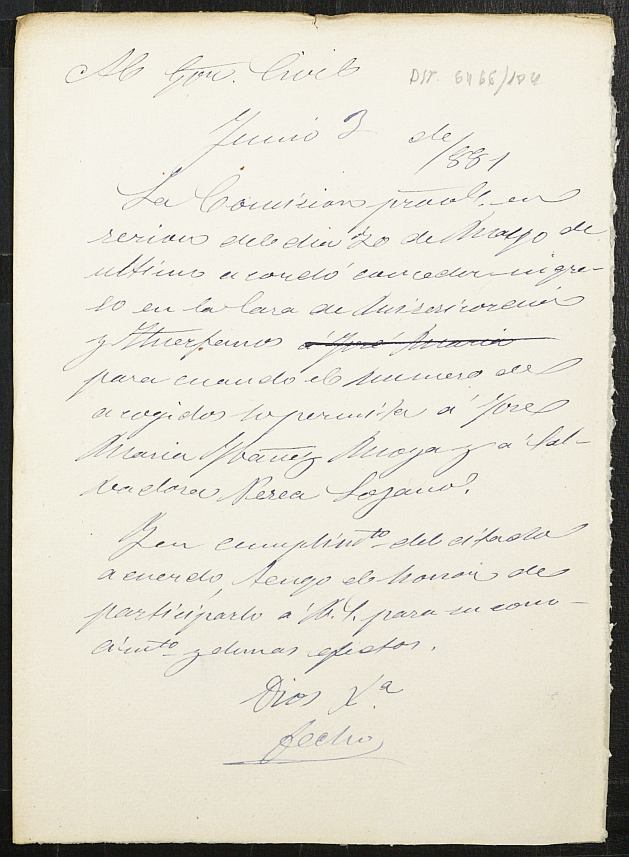 Al Gov. Civil
DIP. 6466/104
Junio 3 de
/881
La Comision prov.l en
sesion del dia 20 de Mayo de
ultimo acordó conceder ingre-
so en la Casa de Misericordia
y Huerfanos á José Maria
para cuando el numero de
acogidos lo permita á José
Maria Ybañez Moya y á Sal-
vadora Perea Lozano.
Y en cumplim.to del citado
acuerdo, tengo el honor de
participarlo á V. S. para su cono-
cim.to y demas efectos.
Dios &.a
fecho